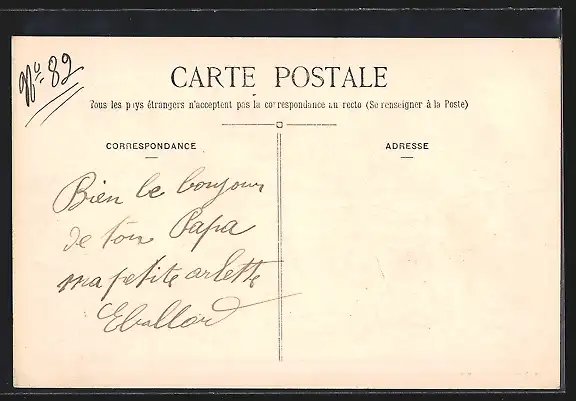 No. 82
CARTE POSTALE
Tous les pays étrangers n'acceptent pas la correspondance au recto (Se renseigner à la Poste)
CORRESPONDANCE
ADRESSE
Bien le bonjour
de ton Papa
ma petite arlette